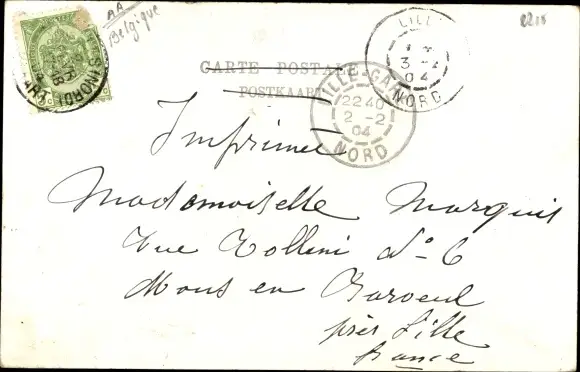 AA
Belgique
2218
CARTE POSTALE
POSTKAART
S (NORD)
LILLE
3 -2
04
NORD
LILLE-GARE
22 40
2 -2
04
NORD
Imprimé
Mademoiselle Marquis
Rue Rollini No 6
Mons en Baroeul
près Lille
france